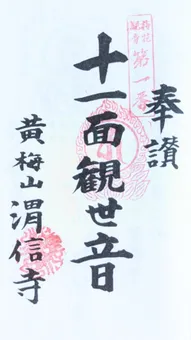 奉讃
第一番
十一面観世音
黄梅山 渭信寺